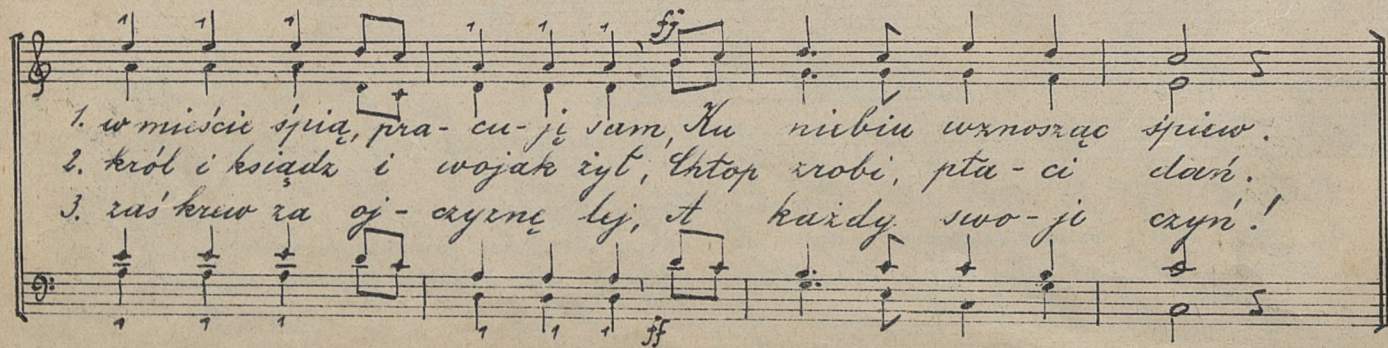 ff
1. w mieście śpią, pra- cu- ję sam, Ku niebiu wznosząc śpiew.
2. król i ksiądz i wojak żył, Chłop zrobi, pła - ci dań.
3. zaś krew za oj - czyznę lej, A każdy swo - je czyń!
ff